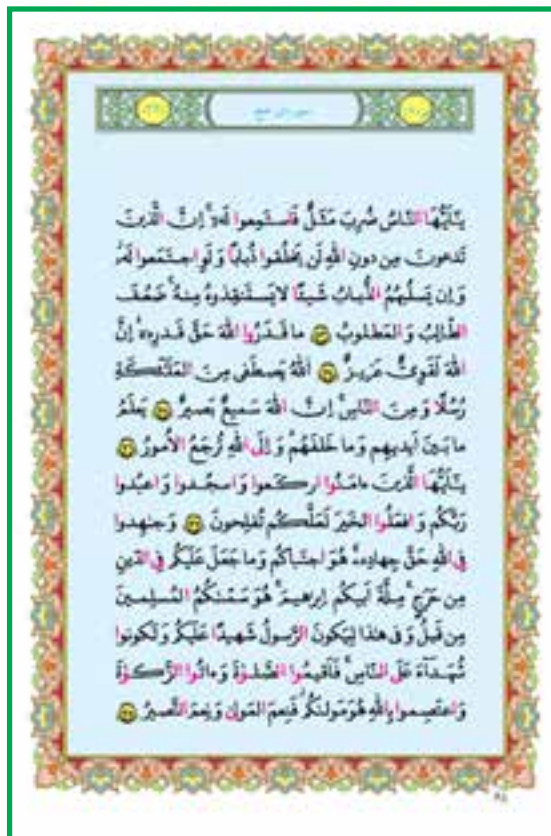 يَٰٓأَيُّهَا النَّاسُ ضُرِبَ مَثَلٌ فَاستَمِعوا لَهُ إِنَّ الَّذينَ
تَدعونَ مِن دونِ اللهِ لَن يَخلُقوا ذُبابًا وَ لَوِ اجتَمَعوا لَهُ
وَ إِن يَسلُبهُمُ الذُّبابُ شَيئًا لا يَستَنقِذوهُ مِنهُ ضَعُفَ
الطّالِبُ وَ المَطلوبُ ما قَدَرُوا اللهَ حَقَّ قَدرِهِ إِنَّ
اللهَ لَقَوِىٌّ عَزيزٌ اَللهُ يَصطَفى مِنَ المَلَٰٓئِكَةِ
رُسُلًا وَ مِنَ النّاسِ إِنَّ اللهَ سَميعٌ بَصيرٌ يَعلَمُ
ما بَينَ أَيديهِم وَ ما خَلفَهُم وَ إِلَى اللهِ تُرجَعُ الأُمورُ
يَٰٓأَيُّهَا الَّذينَ ءامَنُوا اركَعوا وَ اسجُدوا وَ اعبُدوا
رَبَّكُم وَ افعَلُوا الخَيرَ لَعَلَّكُم تُفلِحونَ وَ جٰهِدوا
فِى اللهِ حَقَّ جِهادِهِ هُوَ اجتَباكُم وَ ما جَعَلَ عَلَيكُم فِى الدّينِ
مِن حَرَجٍ مِلَّةَ أَبيكُم إِبرهيمَ هُوَ سَمّىٰكُمُ المُسلِمينَ
مِن قَبلُ وَ فى هٰذا لِيَكونَ الرَّسولُ شَهيدًا عَلَيكُم وَ تَكونوا
شُهَداءَ عَلَى النّاسِ فَأَقيمُوا الصَّلوٰةَ وَ ءاتُوا الزَّكوٰةَ
وَ اعتَصِموا بِاللهِ هُوَ مَولىٰكُم فَنِعمَ المَولىٰ وَ نِعمَ النَّصيرُ